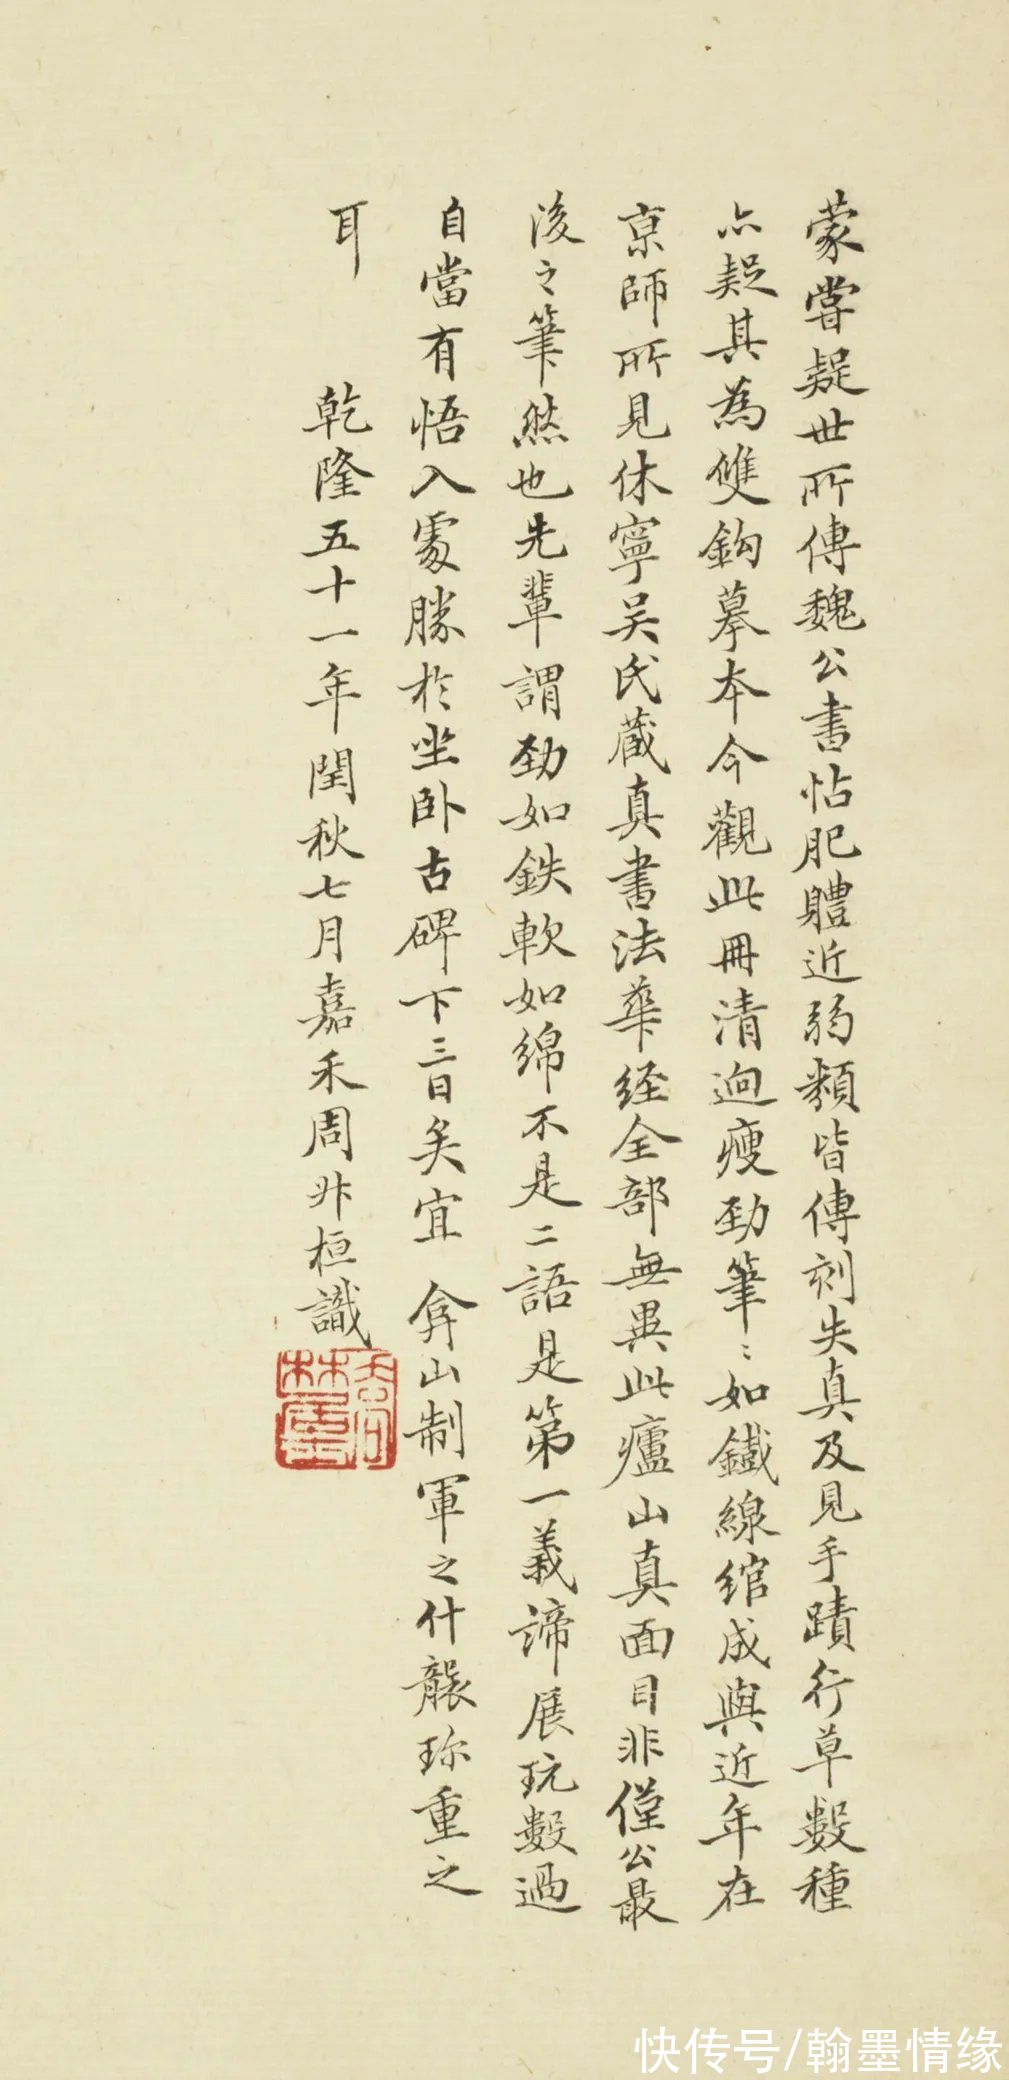 蒙嘗疑世所傳魏公書帖肥體近弱類皆傳刻失真及見手蹟行草數種
亦疑其為雙鈎摹本今觀此冊清迥瘦勁筆〻如鐵線綰成與近年在
京師所見休寧吴氏藏真書法華経全部無異此廬山真面目非僅公最
後之筆然也先輩謂勁如鉄軟如綿不是二語是第一義諦展玩數過
自當有悟入處勝於坐卧古碑下三日矣宜 弇山制軍之什襲珎重之
耳 乾隆五十一年閏秋七月嘉禾周升桓識
快传号/翰墨情缘